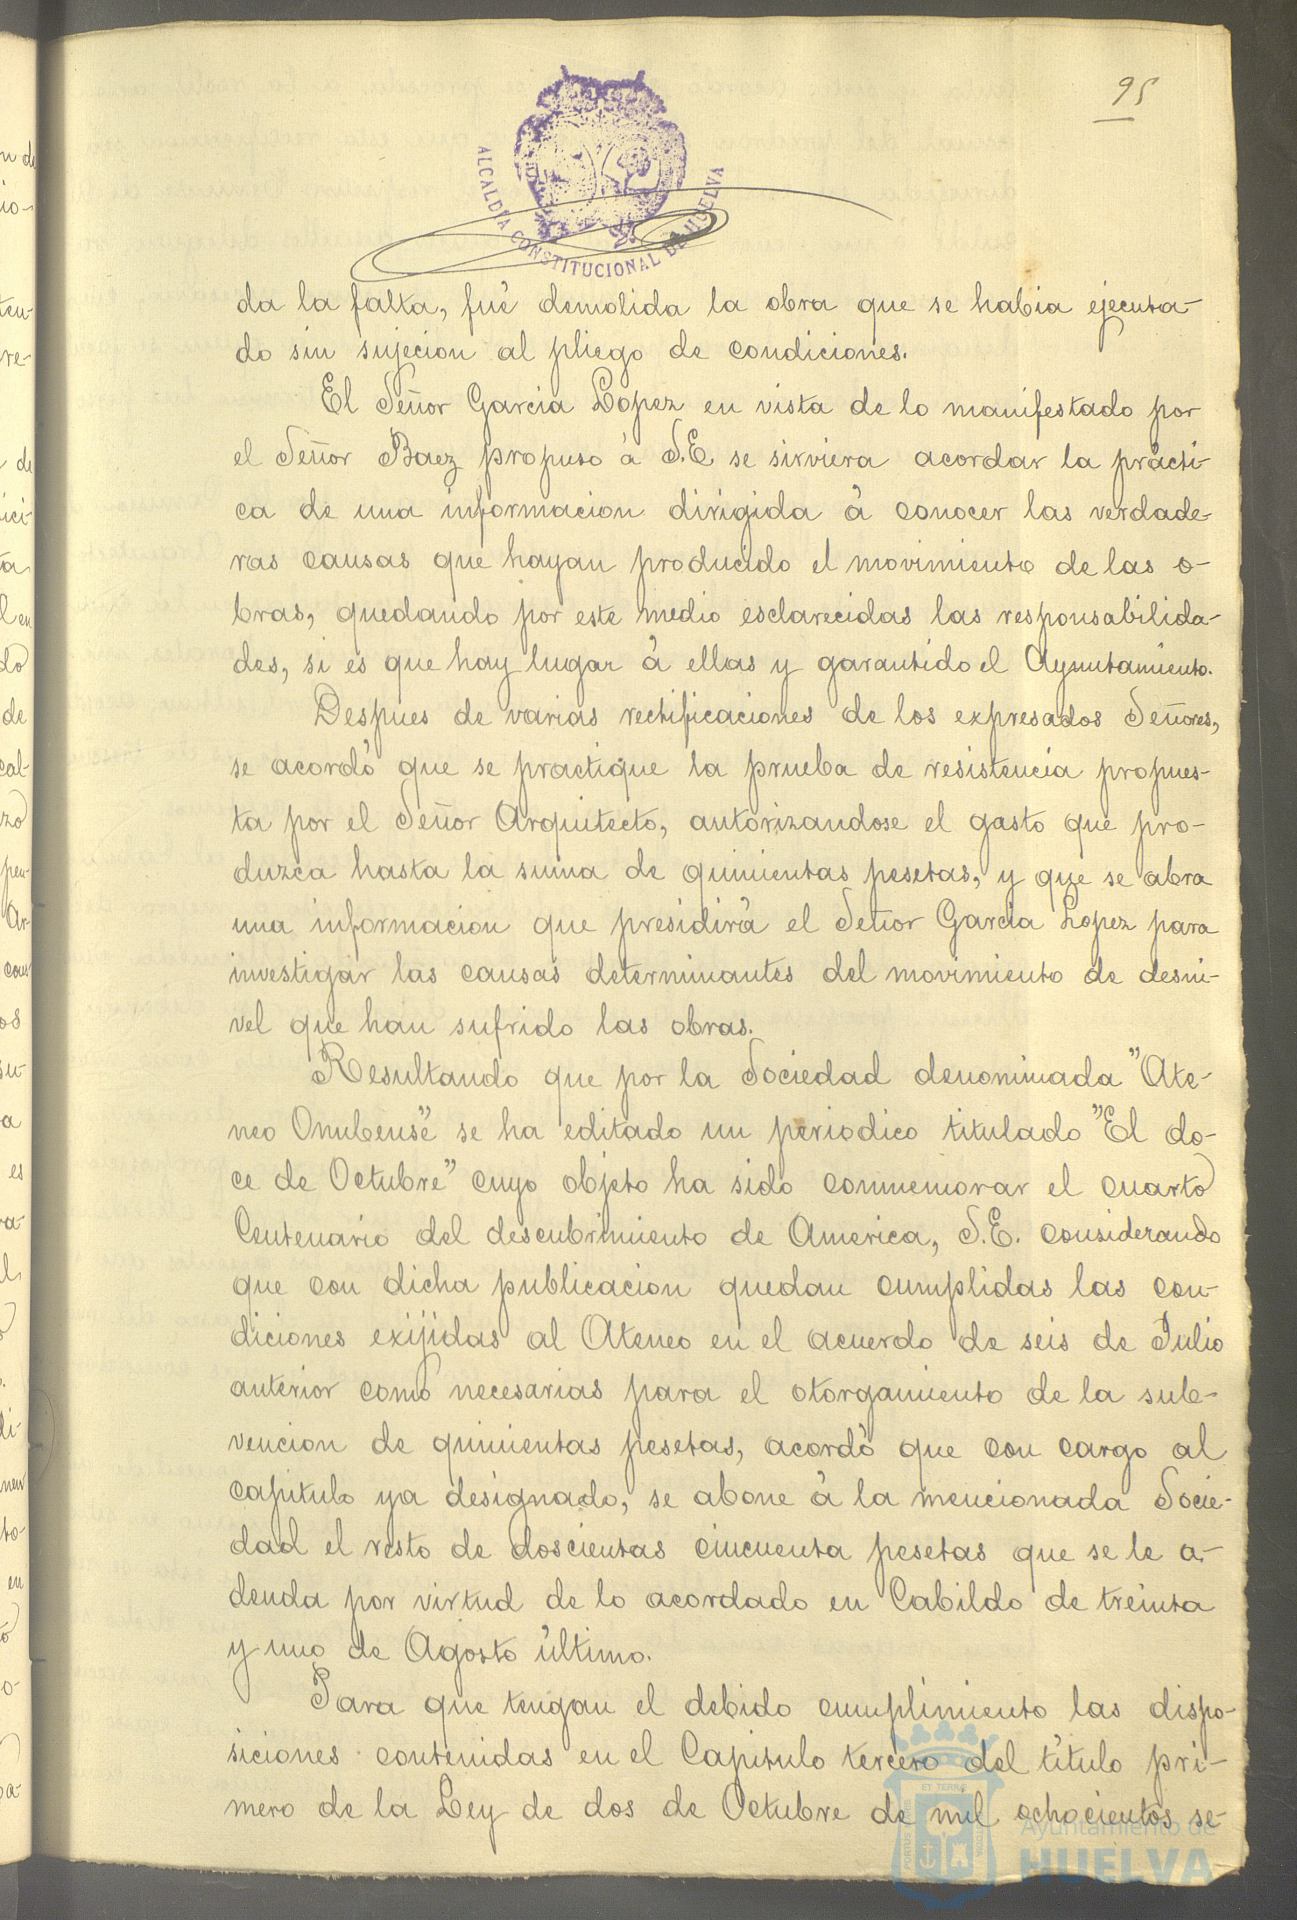 95
ALCALDÍA CONSTITUCIONAL DE HUELVA
da la falta, fué demolida la obra que se habia ejecuta-
do sin sujecion al pliego de condiciones.
El Señor Garcia Lopez en vista de lo manifestado por
el Señor Baez propuso á S.E. se sirviera acordar la prácti-
ca de una informacion dirigida á conocer las verdade-
ras causas que hayan producido el movimiento de las o-
bras, quedando por este medio esclarecidas las responsabilida-
des, si es que hay lugar á ellas y garantido el Ayuntamiento.
Despues de varias rectificaciones de los expresados Señores,
se acordó que se practique la prueba de resistencia propues-
ta por el Señor Arquitecto, autorizandose el gasto que pro-
duzca hasta la suma de quinientas pesetas, y que se abra
una informacion que presidirá el Señor Garcia Lopez para
investigar las causas determinantes del movimiento de desni-
vel que han sufrido las obras.
Resultando que por la Sociedad denominada "Ate-
neo Onubense" se ha editado un periodico titulado "El do-
ce de Octubre" cuyo objeto ha sido conmemorar el cuarto
Centenario del descubrimiento de America, S.E. considerando
que con dicha publicacion quedan cumplidas las con-
diciones exijidas al Ateneo en el acuerdo de seis de Julio
anterior como necesarias para el otorgamiento de la sub-
vencion de quinientas pesetas, acordó que con cargo al
capitulo ya designado, se abone á la mencionada Socie-
dad el resto de doscientas cincuenta pesetas que se le a-
deuda por virtud de lo acordado en Cabildo de treinta
y uno de Agosto último.
Para que tengan el debido cumplimiento las dispo-
siciones contenidas en el Capitulo tercero del título pri-
mero de la Ley de dos de Octubre de mil ochocientos se-
Ayuntamiento de
HUELVA